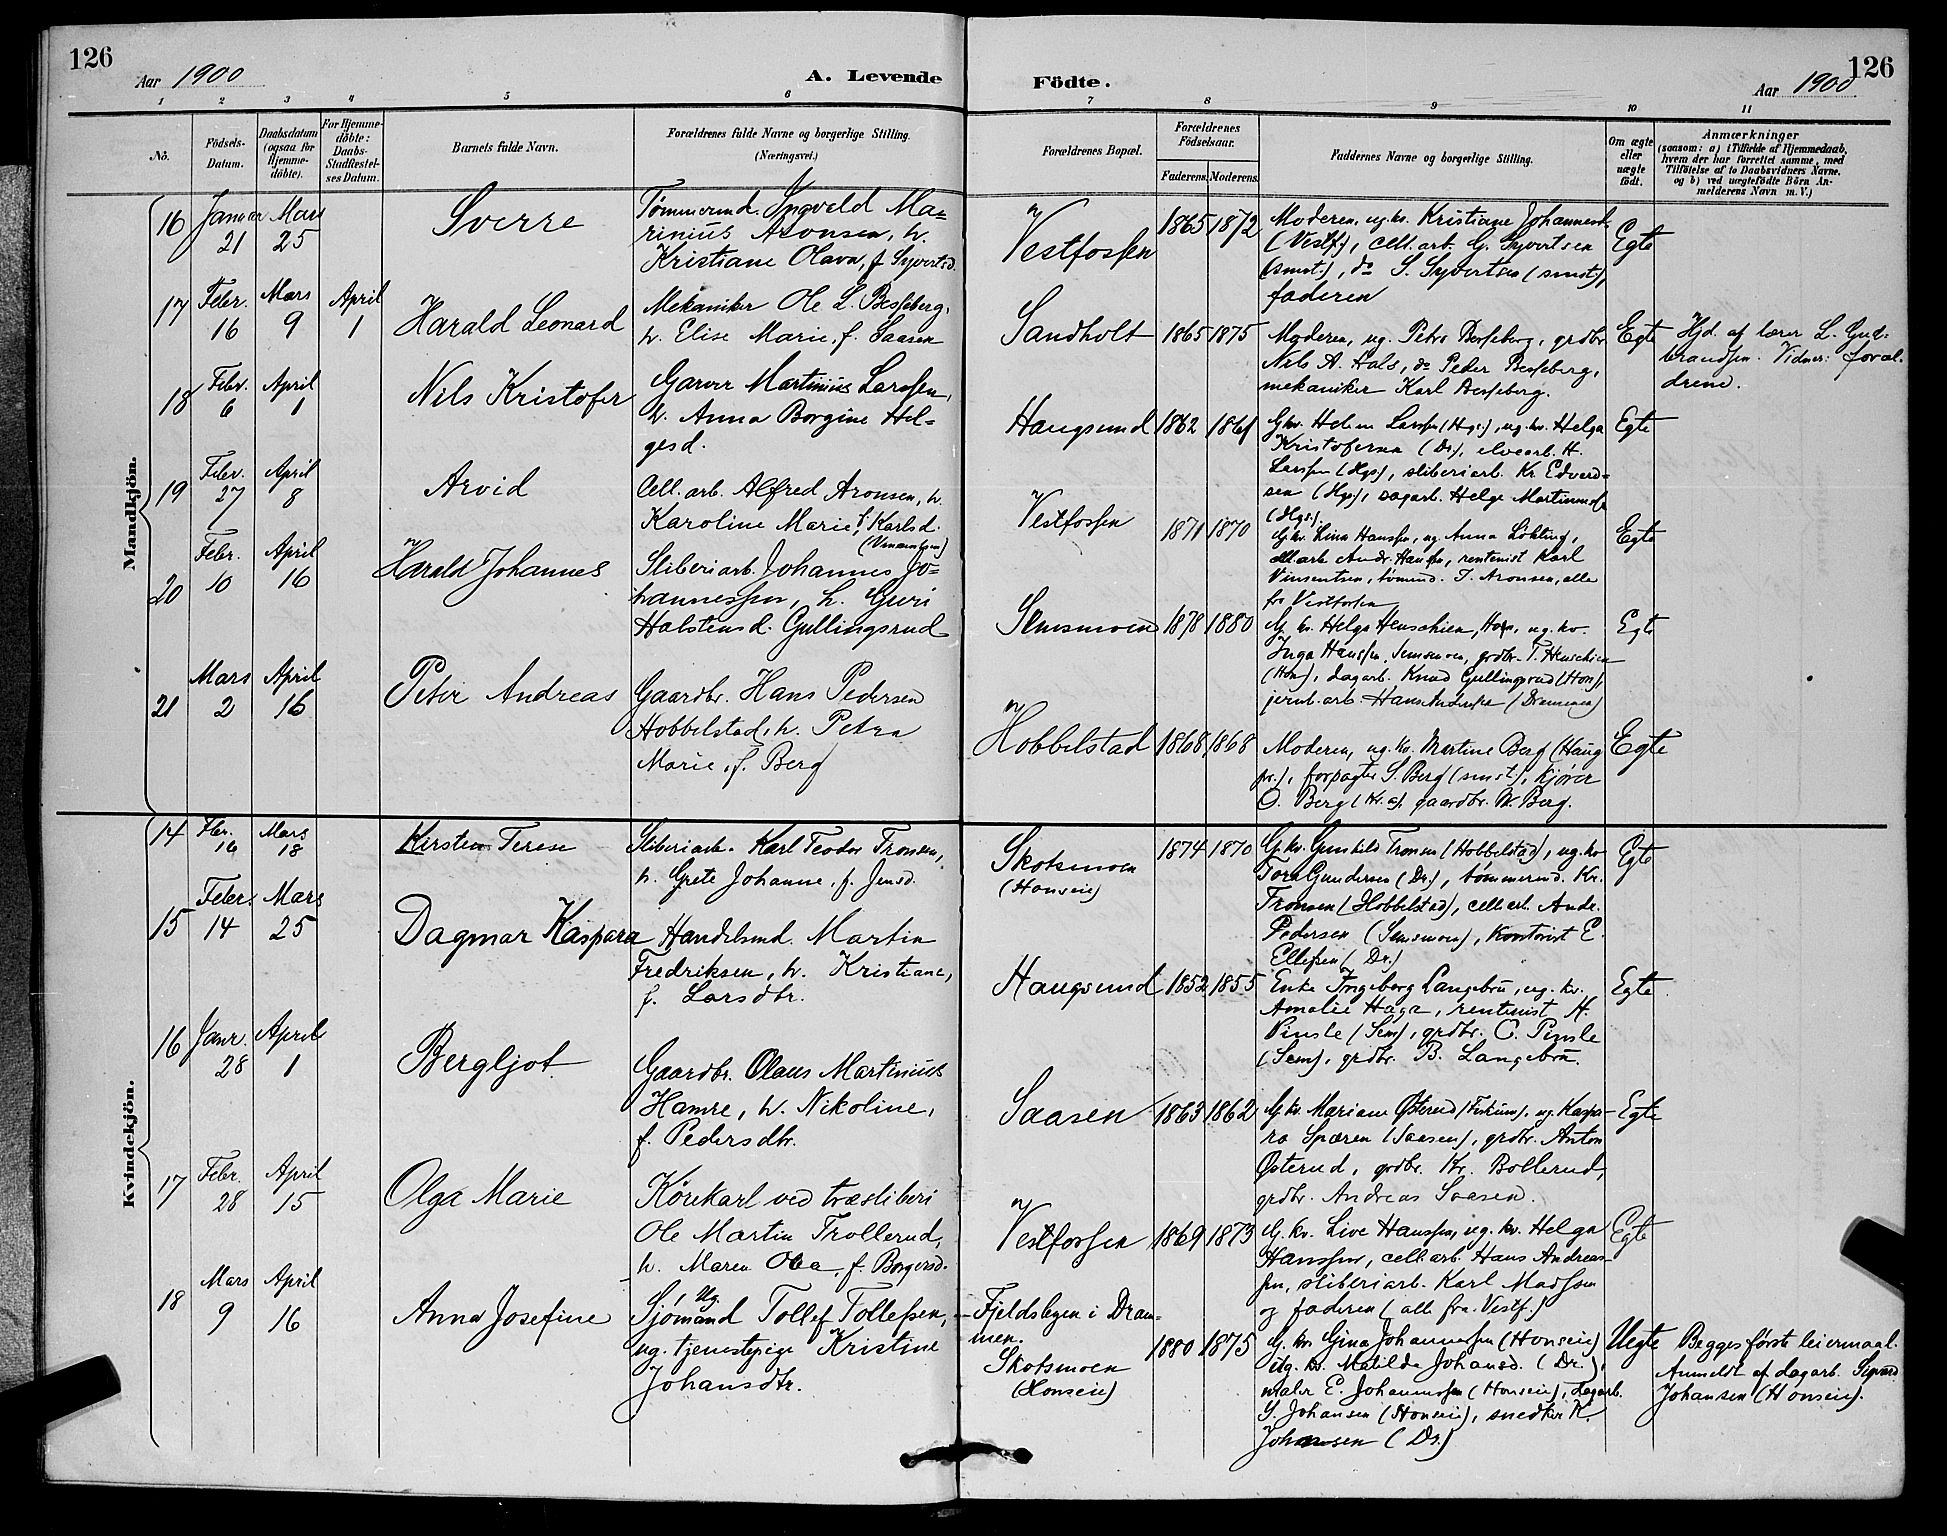 126
Aar 1900
A. Levende
Födte.
Aar 1900
126
1 2 3 4 5 6 7 8 9 10 11
No.
Födsels-
Datum.
Daabsdatum
(ogsaa for
Hjemme-
döbte).
For Hjemme-
döbte:
Daabs-
Stadfæstel-
ses Datum.
Barnets fulde Navn.
Forældrenes fulde Navne og borgerlige Stilling.
(Næringsvei.)
Forældrenes Bopæl.
Forældrenes
Födselsaar.
Faderens. Moderens.
Faddernes Navne og borgerlige Stilling.
Om ægte
eller
uægte
födt.
Anmærkninger
(saasom: a) i Tilfælde af Hjemmedaab,
hvem der har forrettet samme, med
Tilföielse af to Daabsvidners Navne,
og b) ved uægtefödte Börn An-
melderens Navn m. V.)
Mandkjön.
16
Januar
21
Mars
25
Sverre
Tømmermd. Ingvald Ma-
rinius Aronsen, h.
Kristiane Olava, f. Syvertsd.
Vestfossen
1865 1872
Moderen, ug. kv. Kristiane Johannesd.
(Vestf.), cell. arb. G. Syvertsen
(smst.), do S. Syvertsen (smst.),
faderen
Egte
17
Febr.
16
Mars
9
April
1
Harald Leonard
Mekaniker Ole L. Besseberg,
h. Elise Marie, f. Saasen
Sandholt
1865 1875
Moderen, ug. Petra Besseberg, grdbr.
Nils A. Hals, do Peder Besseberg,
mekaniker Karl Besseberg.
Egte
Hjd. af lærer L. Gud-
brandsen. Vidner: foræl-
drene.
18
Febr.
6
April
1
Nils Kristofer
Garver Martinius Larssen,
h. Anna Borgine Hel-
gesd.
Haugsund
1862 1861
Gkv. Helene Larssen (Hgs.), ug. kv. Helga
Kristofersen (Dr.), elvearb. H.
Larssen (Hgs), sliberiarb. Kr. Edvard-
sen (Hgs), sagarb. Helge Martinius
(Hgs.)
Egte
19
Febr.
27
April
8
Arvid
Cell. arb. Alfred Aronsen, h.
Karoline Marie, f. Karlsd.
(Vinsentsen)
Vestfossen
1871 1870
Gkv. Lina Hanssen, ug. Anna Løkting,
cell. arb. Andr. Hanssen, rentenist Karl
Vinsentsen, tømmd. I. Aronsen, alle
fra Vestfossen
Egte
20
Febr.
10
April
16
Harald Johannes
Sliberiarb. Johannes Jo-
hannessen, h. Guri
Halstensd. Gullingsrud
Semsmoen
1878 1880
G. kv. Helga Henschien, Hon, ug. kv.
Inga Hanssen, Semsmoen, grdbr. T. Henschien
(Hon), dagarb. Knud Gullingsrud (Hon),
jernb. arb. Hans Anderssen (Drammen)
Egte
21
Mars
2
April
16
Peter Andreas
Gaardbr. Hans Pedersen
Hobbelstad, h. Petra
Marie, f. Berg
Hobbelstad
1868 1868
Moderen, ug. kv. Martine Berg (Haug
pr.), forpagter S. Berg (smst), kjører
O. Berg (Kr.a), gaardbr. M. Berg.
Egte
Kvindekjön.
14
Febr.
16
Mars
18
Kirsten Terese
Sliberiarb. Karl Teodor Tronsen,
h. Grete Johanne, f. Jensd.
Skotsmoen
(Honseie)
1874 1870
G. kv. Gunhild Tronsen (Hobbelstad), ug. kv
Tora Gundersen (Dr.), tømmermd. Kr.
Tronsen (Hobbelstad), cell. arb. Andr.
Pedersen (Semsmoen), kontorist E.
Ellefsen (Dr.)
Egte
15
Febr.
14
Mars
25
Dagmar Kaspara
Handelsmd. Martin
Fredriksen, h. Kristiane,
f. Larsdtr.
Haugsund
1852 1855
Enke Ingeborg Langebru, ug. kv.
Amalie Haga, rentenist H.
Pinsle (Sem), grdbr. C. Pinsle
(Sem), grdbr. B. Langebru.
Egte
16
Janr.
28
April
1
Bergljot
Gaardbr. Olaus Martinius
Hamre, h. Nikoline,
f. Pedersdtr.
Saasen
1863 1862
G. kv. Mariane Østerud (Fiskum), ug. Kaspa-
ra Spæren (Saasen), grdbr. Anton
Østerud, grdbr. Kr. Bollerud,
grdbr. Andreas Saasen.
Egte
17
Febr.
28
April
15
Olga Marie
Kørekarl ved træsliberi
Ole Martin Trollerud,
h. Maren Olea, f. Borgersd.
Vestfossen
1869 1873
G. kv. Live Hanssen, ug. kv. Helga
Hanssen, cell. arb. Hans Andreas-
sen, sliberiarb. Karl Madssen
og faderen (alle fra Vestf.)
Egte
18
Mars
9
April
16
Anna Josefine
Ug.
Sjømand Tollef Tollefsen,
ug. tjenestepige Kristine
Johansdtr.
Fjeldsbyen i Dram-
men.
Skotsmoen
(Honseie)
1880 1875
G. kv. Gina Johannessen (Honseie)
ug. kv. Matilde Johansd. (Dr.),
maler E. Johannessen (Honseie), dagarb.
S. Johansen (Honseie), snedker K.
Johansen (Dr.)
Uegte
Begges første leiermaal.
Anmeldt af dagarb. Sigvard
Johansen (Honseie).